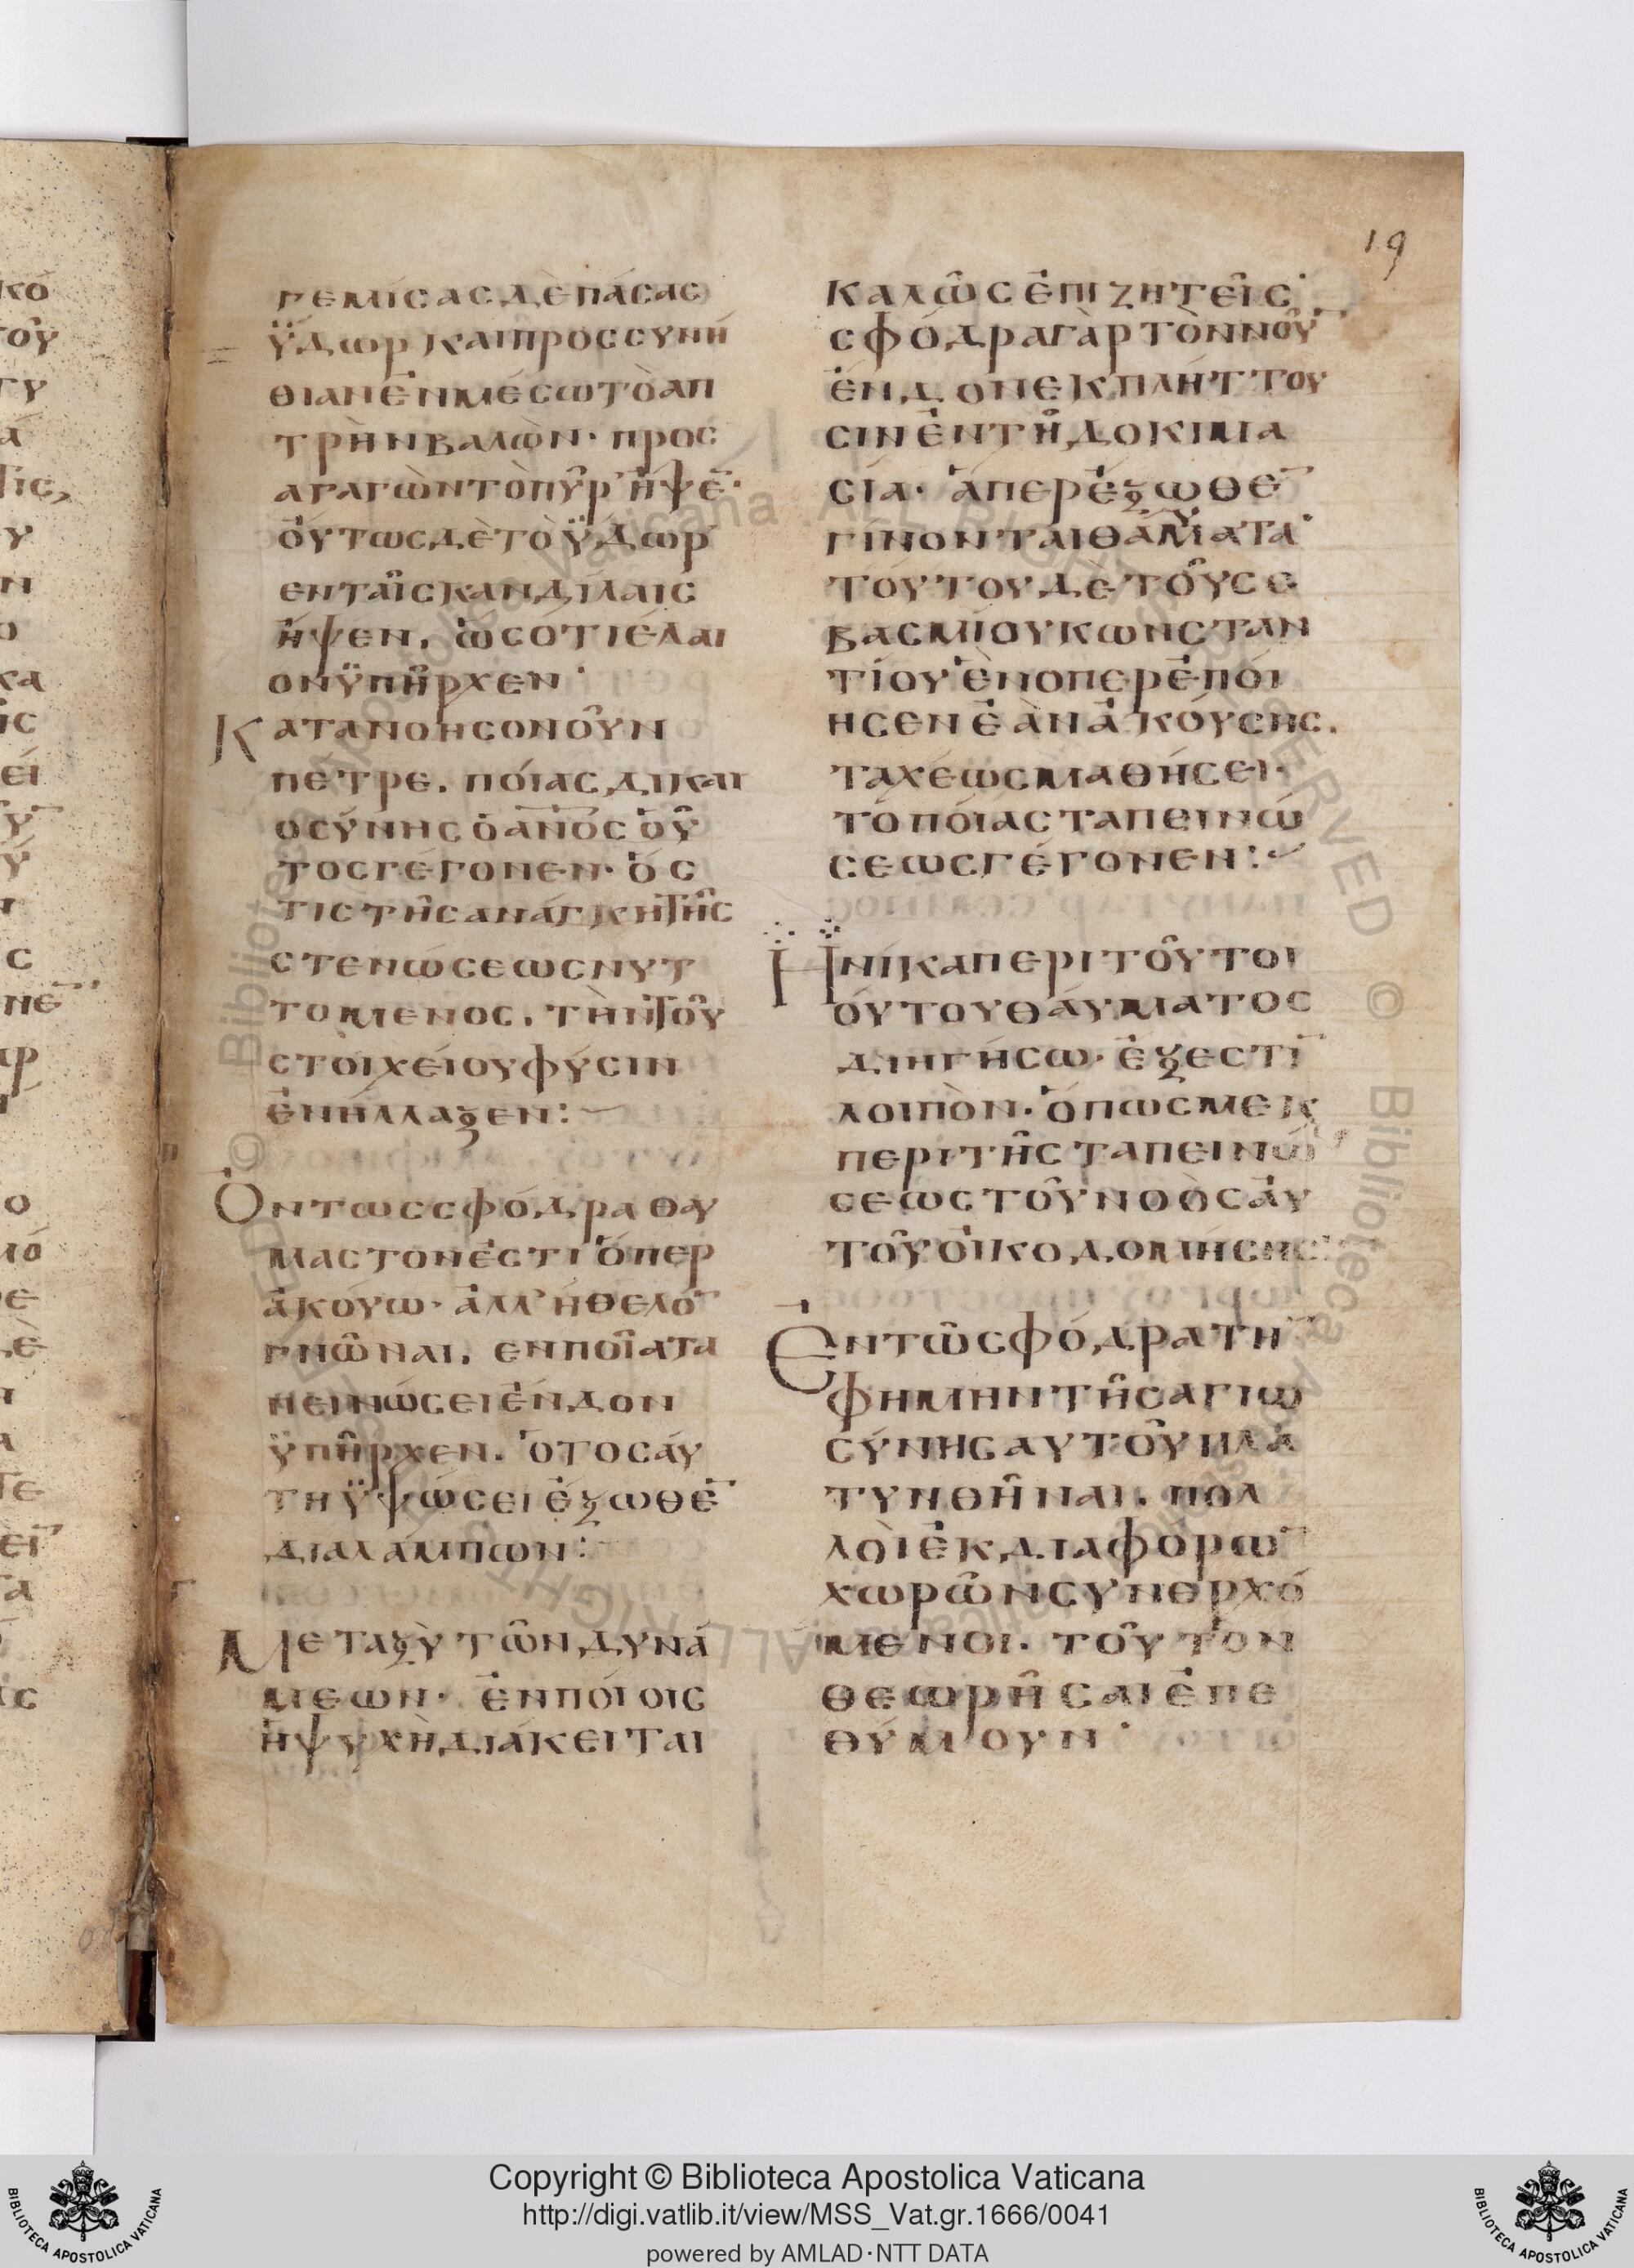 19
γεμίσας δὲ πάσας
ὕδωρ καὶ προς συνή
θιαν ἐν μέσω τὸ απ
τρὴν βαλὼν· προς
αγαγὼν τὸ πῦρ ἧψε̅·
ὅυτως δὲ τὸ ὕδωρ
εν ταῖς κανδίλαις
ἧψεν, ὡς ότι έλαι
ον ὑπῆρχεν·
Κατανοησον οῦν
πετρε, πόιας δικαι
οσύνης ὁ α̅ν̅ο̅ς̅ οὗ
τος γέγονεν· ὅς
τις τῆς ανάγκης τῆς
στενώσεως νυτ
τομενος, τὴν τοῦ
στοιχείου φύσιν
ἐνήλλαξεν:
Ὄντως σφόδρα θαυ
μαστον ἐστι ὅπερ
ἀκούω· ἀλλ' ήθελο̅
γνῶναι, εν ποία τα
πεινώσει ένδον
ὑπῆρχεν, ὁ τοσάυ
τη ὑψώσει ἔξωθε̅
διαλάμπων:
Μεταξὺ τῶν δυνά
μεων· ἐν ποίοις
ἡ ψυχὴ διάκειται
Καλῶς ἐπιζητεῖς·
σφόδρα γὰρ τὸν νοῦ̅
ένδον εκπλήττου
σιν ἐν τῆ δοκιμα
σία· ἅπερ έξωθε̅
γίνονται θάυματα·
τόυτου δε τοῦ σε
βασμίου Κωνσταν
τίου ἓν όπερ ἐπόι
ησεν ἐὰν ἀκόυσης,
ταχέως μαθήσει·
τό πόιας ταπεινώ
σεως γέγονεν:
Ἡνίκα περι τοῦ τοι
ούτου θάυματος
διηγήσω· ἔξεστι̅
λοιπὸν· ὅπως με κ
περι τῆς ταπεινώ
σεως τοῦ νοὸς ἀυ
τοῦ οἰκοδομήσης·
Ἐν τῶ σφόδρα τὴ̅
φήμην τῆς αγιω
σύνης αυτοῦ πλα
τυνθῆναι, πολ
λοὶ ἐκ διαφορω̅
χωρῶν συνερχό
μενοι· τοῦτον
θεωρῆσαι ἐπε
θύμουν·
Copyright © Biblioteca Apostolica Vaticana
http://digi.vatlib.it/view/MSS_Vat.gr.1666/0041
powered by AMLAD·NTT DATA
BIBLIOTECA APOSTOLICA VATICANA
BIBLIOTECA APOSTOLICA VATICANA